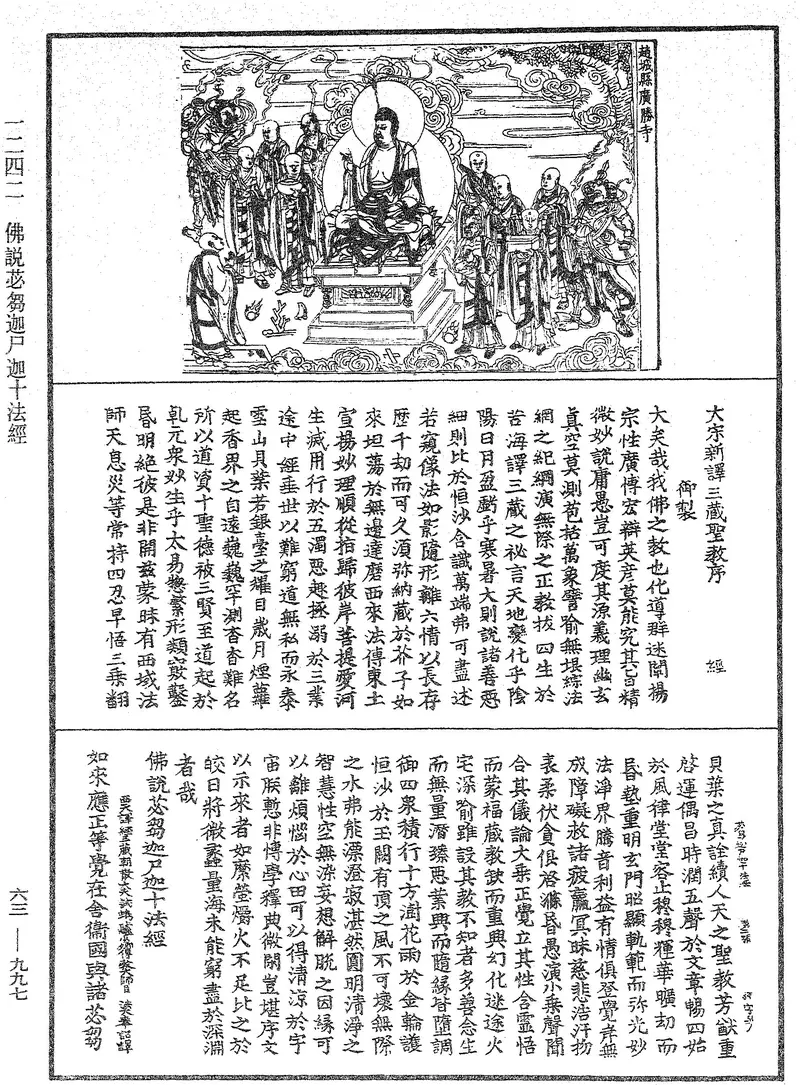 趙城縣廣勝寺
大宋新譯三藏聖教序　經
御製
大矣哉我佛之教也化導群迷闡揚
宗性廣博宏辯英彥莫能究其旨精
微妙說庸愚豈可度其源義理幽玄
真空莫測苞括萬象譬喻無垠綜法
網之紀綱演無際之正教拔四生於
苦海譯三藏之祕言天地變化乎陰
陽日月盈虧乎寒暑大則說諸善惡
細則比於恒沙含識萬端弗可盡述
若窺像法如影隨形離六情以長存
歷千劫而可久須弥納藏於芥子如
來坦蕩於無邊達磨西來法傳東土
宣揚妙理順從指歸彼岸菩提愛河
生滅用行於五濁惡趣拯溺於三業
途中經垂世以難窮道無私而永泰
雪山貝葉若銀臺之耀目歲月煙蘿
起香界之自遠巍巍罕測杳杳難名
所以道資十聖德被三賢至道起於
乾元衆妙生乎太易惣繫形類窾鑿
昬明絕彼是非開茲蒙昧有西域法
師天息災等常持四忍早悟三乗翻
貝葉之真詮續人天之聖教芳猷重
啓運偶昌時潤五聲於文章暢四始
於風律堂堂容止穆穆輝華曠劫而
昬墊重明玄門昭顯軌範而弥光妙
法淨界騰音利益有情俱登覺岸無
成障礙救諸疲羸冥昧慈悲浩汗物
表柔伏貪俱啓滌昬愚演小乗聲聞
合其儀論大乗正覺立其性含靈悟
而蒙福藏教缺而重興幻化迷途火
宅深喻雖設其教不知者多善念生
而無量潛臻惡業興而隨緣皆墮調
御四衆積行十方澍花雨於金輪護
恒沙於玉闕有頂之風不可壞無際
之水弗能漂澄寂湛然圓明清淨之
智慧性空無染妄想解脫之因緣可
以離煩惱於心田可以得清涼於宇
宙朕慙非博學釋典微閑豈堪序文
以示來者如縻瑩爝火不足比之於
皎日將微蠡量海未能窮盡於深淵
者哉
佛說苾芻迦尸迦十法經
西天譯經三藏朝散大夫試鴻臚
如來應正等覺在舍衛國與諸苾芻
一二四二　佛說苾芻迦尸迦十法經
六三——九九七